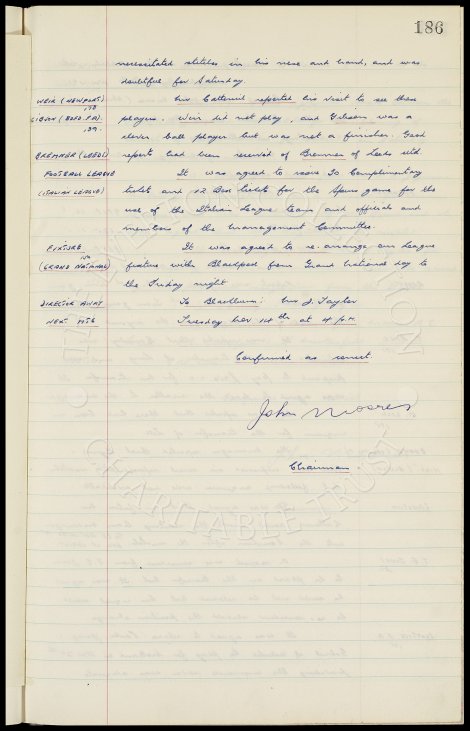 186
necessitated stitches in his nose and hand, and was
doubtful for Saturday.
WEIR (NEWPORT) Mr Catterick reported his visit to see these
GIBSON (BORO. F.A.) players. Weir did not play, and Gibson was a
clever ball player but was not a finisher. Good
BREMNER (LEEDS) reports had been received of Bremner of Leeds Utd.
FOOTBALL LEAGUE It was agreed to issue 30 Complimentary
(ITALIAN LEAGUE) tickets and 12 Box tickets for the Spurs game for the
use of the Italian League team and officials and
members of the Management Committee.
FIXTURE It was agreed to re-arrange our League
(GRAND NATIONAL) fixture with Blackpool from Grand National day to
the Friday night
DIRECTOR AWAY To Blackburn: Mr J. Taylor
NEXT MTG Tuesday Nov 14th at 4 p.m.
Confirmed as correct
John Moores
Chairman.
THE EVERTON COLLECTION
CHARITABLE TRUST